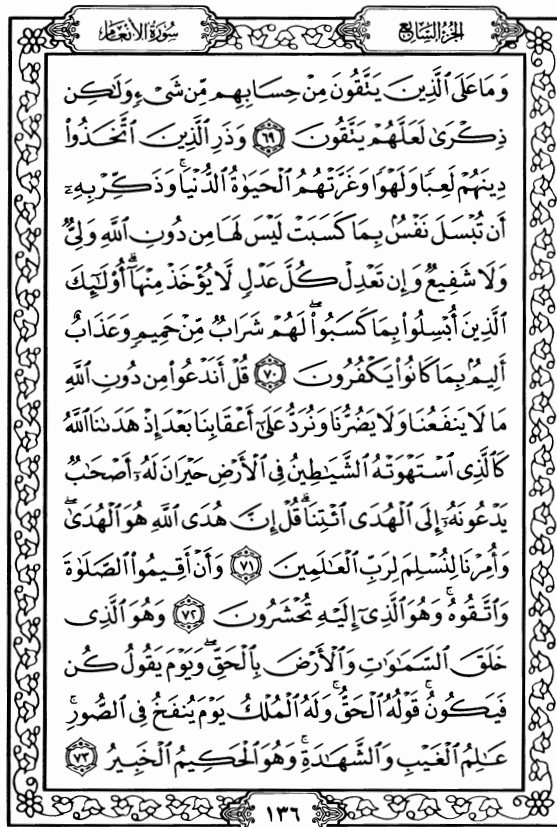 سُورَةُ الأَنْعَامِ
الجُزءُ السَّابِعُ
وَمَا عَلَى ٱلَّذِينَ يَتَّقُونَ مِنْ حِسَابِهِم مِّن شَىْءٍ وَلَٰكِن
ذِكْرَىٰ لَعَلَّهُمْ يَتَّقُونَ ٦٩ وَذَرِ ٱلَّذِينَ ٱتَّخَذُوا۟
دِينَهُمْ لَعِبًا وَلَهْوًا وَغَرَّتْهُمُ ٱلْحَيَوٰةُ ٱلدُّنْيَا ۚ وَذَكِّرْ بِهِۦٓ
أَن تُبْسَلَ نَفْسٌۢ بِمَا كَسَبَتْ لَيْسَ لَهَا مِن دُونِ ٱللَّهِ وَلِىٌّ
وَلَا شَفِيعٌ وَإِن تَعْدِلْ كُلَّ عَدْلٍ لَّا يُؤْخَذْ مِنْهَآ ۗ أُو۟لَٰٓئِكَ
ٱلَّذِينَ أُبْسِلُوا۟ بِمَا كَسَبُوا۟ ۖ لَهُمْ شَرَابٌ مِّنْ حَمِيمٍ وَعَذَابٌ
أَلِيمٌۢ بِمَا كَانُوا۟ يَكْفُرُونَ ٧٠ قُلْ أَنَدْعُوا۟ مِن دُونِ ٱللَّهِ
مَا لَا يَنفَعُنَا وَلَا يَضُرُّنَا وَنُرَدُّ عَلَىٰٓ أَعْقَابِنَا بَعْدَ إِذْ هَدَىٰنَا ٱللَّهُ
كَٱلَّذِى ٱسْتَهْوَتْهُ ٱلشَّيَٰطِينُ فِى ٱلْأَرْضِ حَيْرَانَ لَهُۥٓ أَصْحَٰبٌ
يَدْعُونَهُۥٓ إِلَى ٱلْهُدَى ٱئْتِنَا ۗ قُلْ إِنَّ هُدَى ٱللَّهِ هُوَ ٱلْهُدَىٰ ۖ
وَأُمِرْنَا لِنُسْلِمَ لِرَبِّ ٱلْعَٰلَمِينَ ٧١ وَأَنْ أَقِيمُوا۟ ٱلصَّلَوٰةَ
وَٱتَّقُوهُ ۚ وَهُوَ ٱلَّذِىٓ إِلَيْهِ تُحْشَرُونَ ٧٢ وَهُوَ ٱلَّذِى
خَلَقَ ٱلسَّمَٰوَٰتِ وَٱلْأَرْضَ بِٱلْحَقِّ ۖ وَيَوْمَ يَقُولُ كُن
فَيَكُونُ ۚ قَوْلُهُ ٱلْحَقُّ ۚ وَلَهُ ٱلْمُلْكُ يَوْمَ يُنفَخُ فِى ٱلصُّورِ ۚ
عَٰلِمُ ٱلْغَيْبِ وَٱلشَّهَٰدَةِ ۚ وَهُوَ ٱلْحَكِيمُ ٱلْخَبِيرُ ٧٣
١٣٦